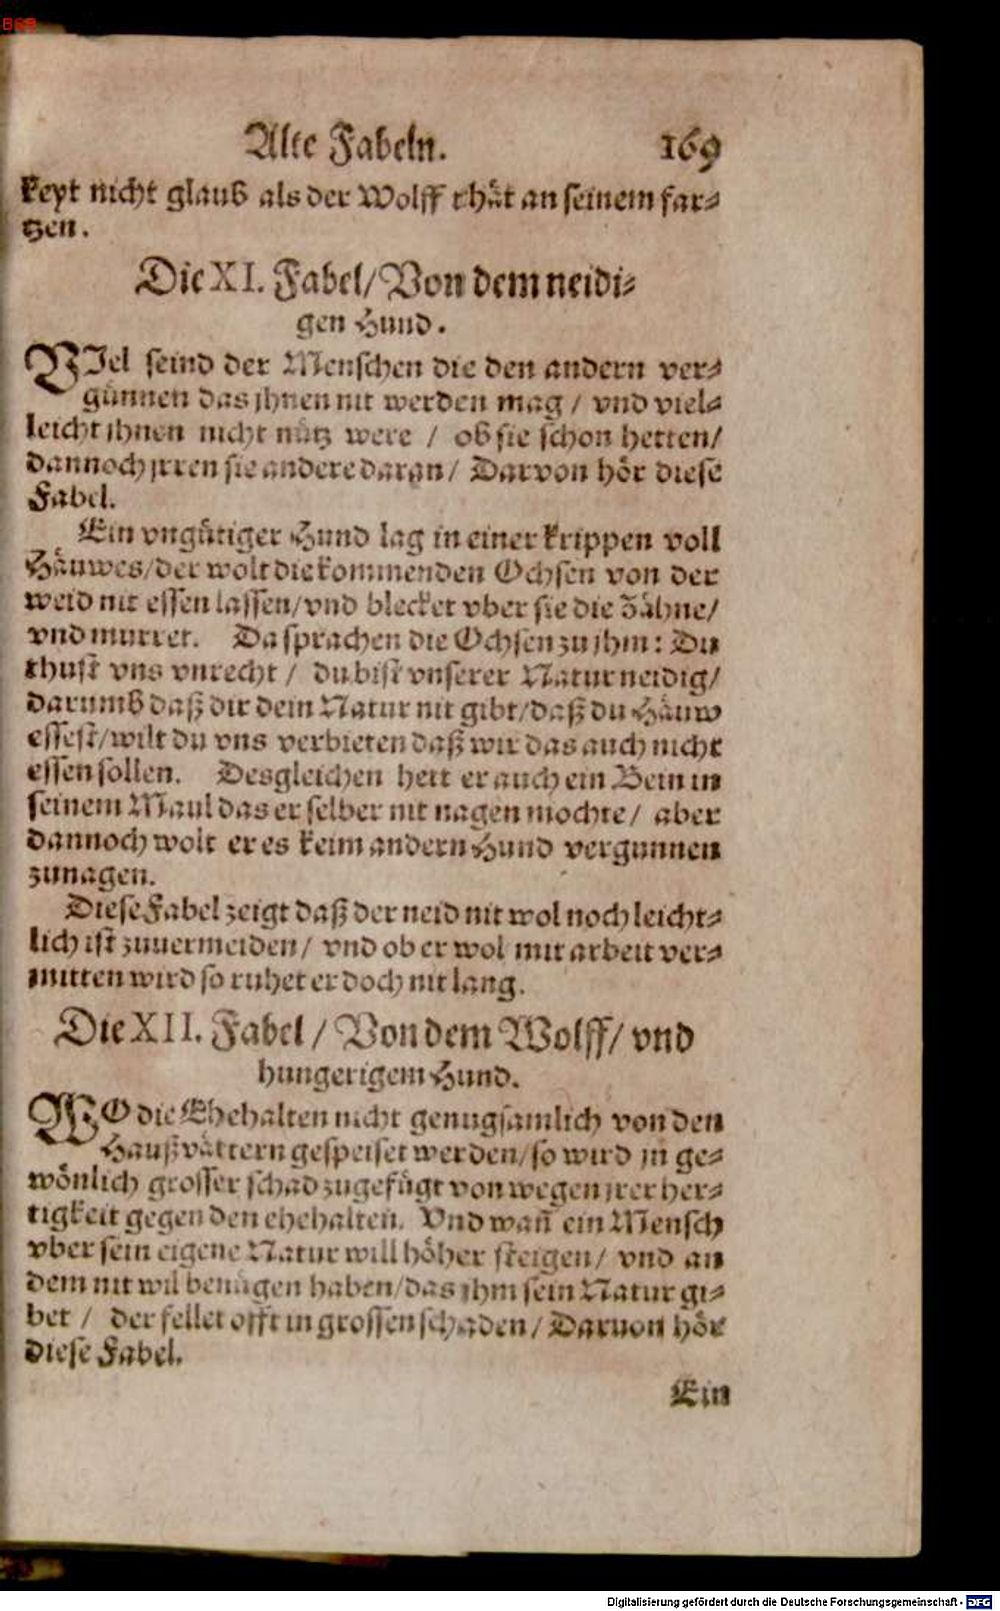 B69
Alte Fabeln. 169
keyt nicht glaub als der Wolff thät an seinem far⸗
tzen.
Die XI. Fabel/ Von dem neidi⸗
gen Hund.
VIel seind der Menschen die den andern ver⸗
günnen das jhnen nit werden mag / vnd viel⸗
leicht jhnen nicht nütz were / ob sie schon hetten/
dannoch jrren sie andere daran/ Darvon hör diese
Fabel.
Ein vngütiger Hund lag in einer krippen voll
Häuwes/der wolt die kommenden Ochsen von der
weid nit essen lassen/vnd blecket vber sie die Zähne/
vnd murret. Da sprachen die Ochsen zu jhm: Du
thust vns vnrecht / du bist vnserer Natur neidig/
darumb daß dir dein Natur nit gibt/daß du Häuw
essest/wilt du vns verbieten daß wir das auch nicht
essen sollen. Desgleichen hett er auch ein Bein in
seinem Maul das er selber nit nagen mochte/ aber
dannoch wolt er es keim andern Hund vergunnen
zunagen.
Diese Fabel zeigt daß der neid nit wol noch leicht⸗
lich ist zuuermeiden/ vnd ob er wol mit arbeit ver⸗
mitten wird so ruhet er doch nit lang.
Die XII. Fabel / Von dem Wolff/ vnd
hungerigem Hund.
WO die Ehehalten nicht genugsamlich von den
Haußvättern gespeiset werden/so wird jn ge⸗
wönlich grosser schad zugefügt von wegen jrer her⸗
tigkeit gegen den ehehalten. Vnd wañ ein Mensch
vber sein eigene Natur will höher steigen/ vnd an
dem nit wil benügen haben/das jhm sein Natur gi⸗
bet / der fellet offt in grossen schaden/ Daruon hör
diese Fabel.
Ein
Digitalisierung gefördert durch die Deutsche Forschungsgemeinschaft - DFG